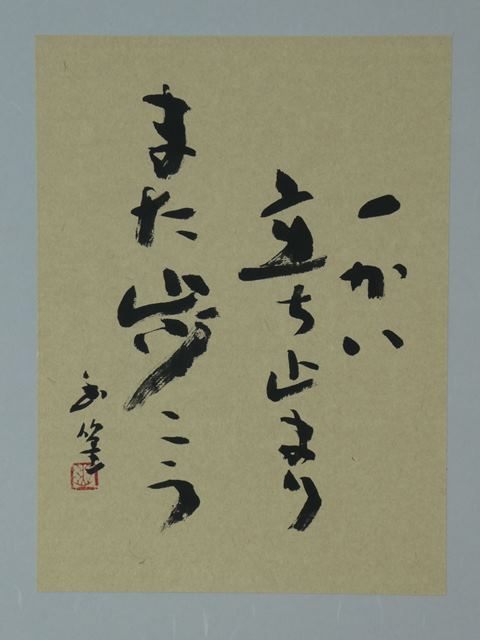 一かい
立ち止まり
また歩こう